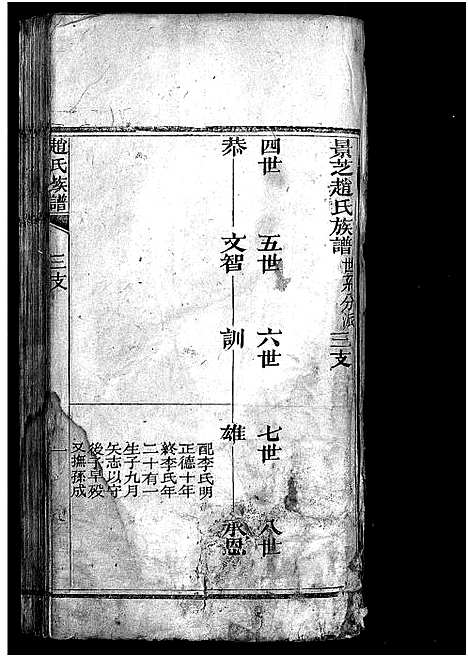 景芝趙氏族譜 世系分派 三支
四世 五世 六世 七世 八世
恭 文智 訓 雄 承恩
配李氏明
正德十年
終李氏年
二十有一
生子九月
矢志以守
後子早殁
又撫孫成
趙氏族譜 三支 一